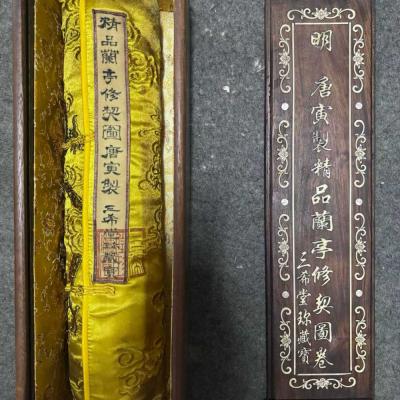 精品蘭亭修契圖唐寅製 三希堂珍藏寶
明 唐寅製精品蘭亭修契圖卷
三希堂珍藏寶